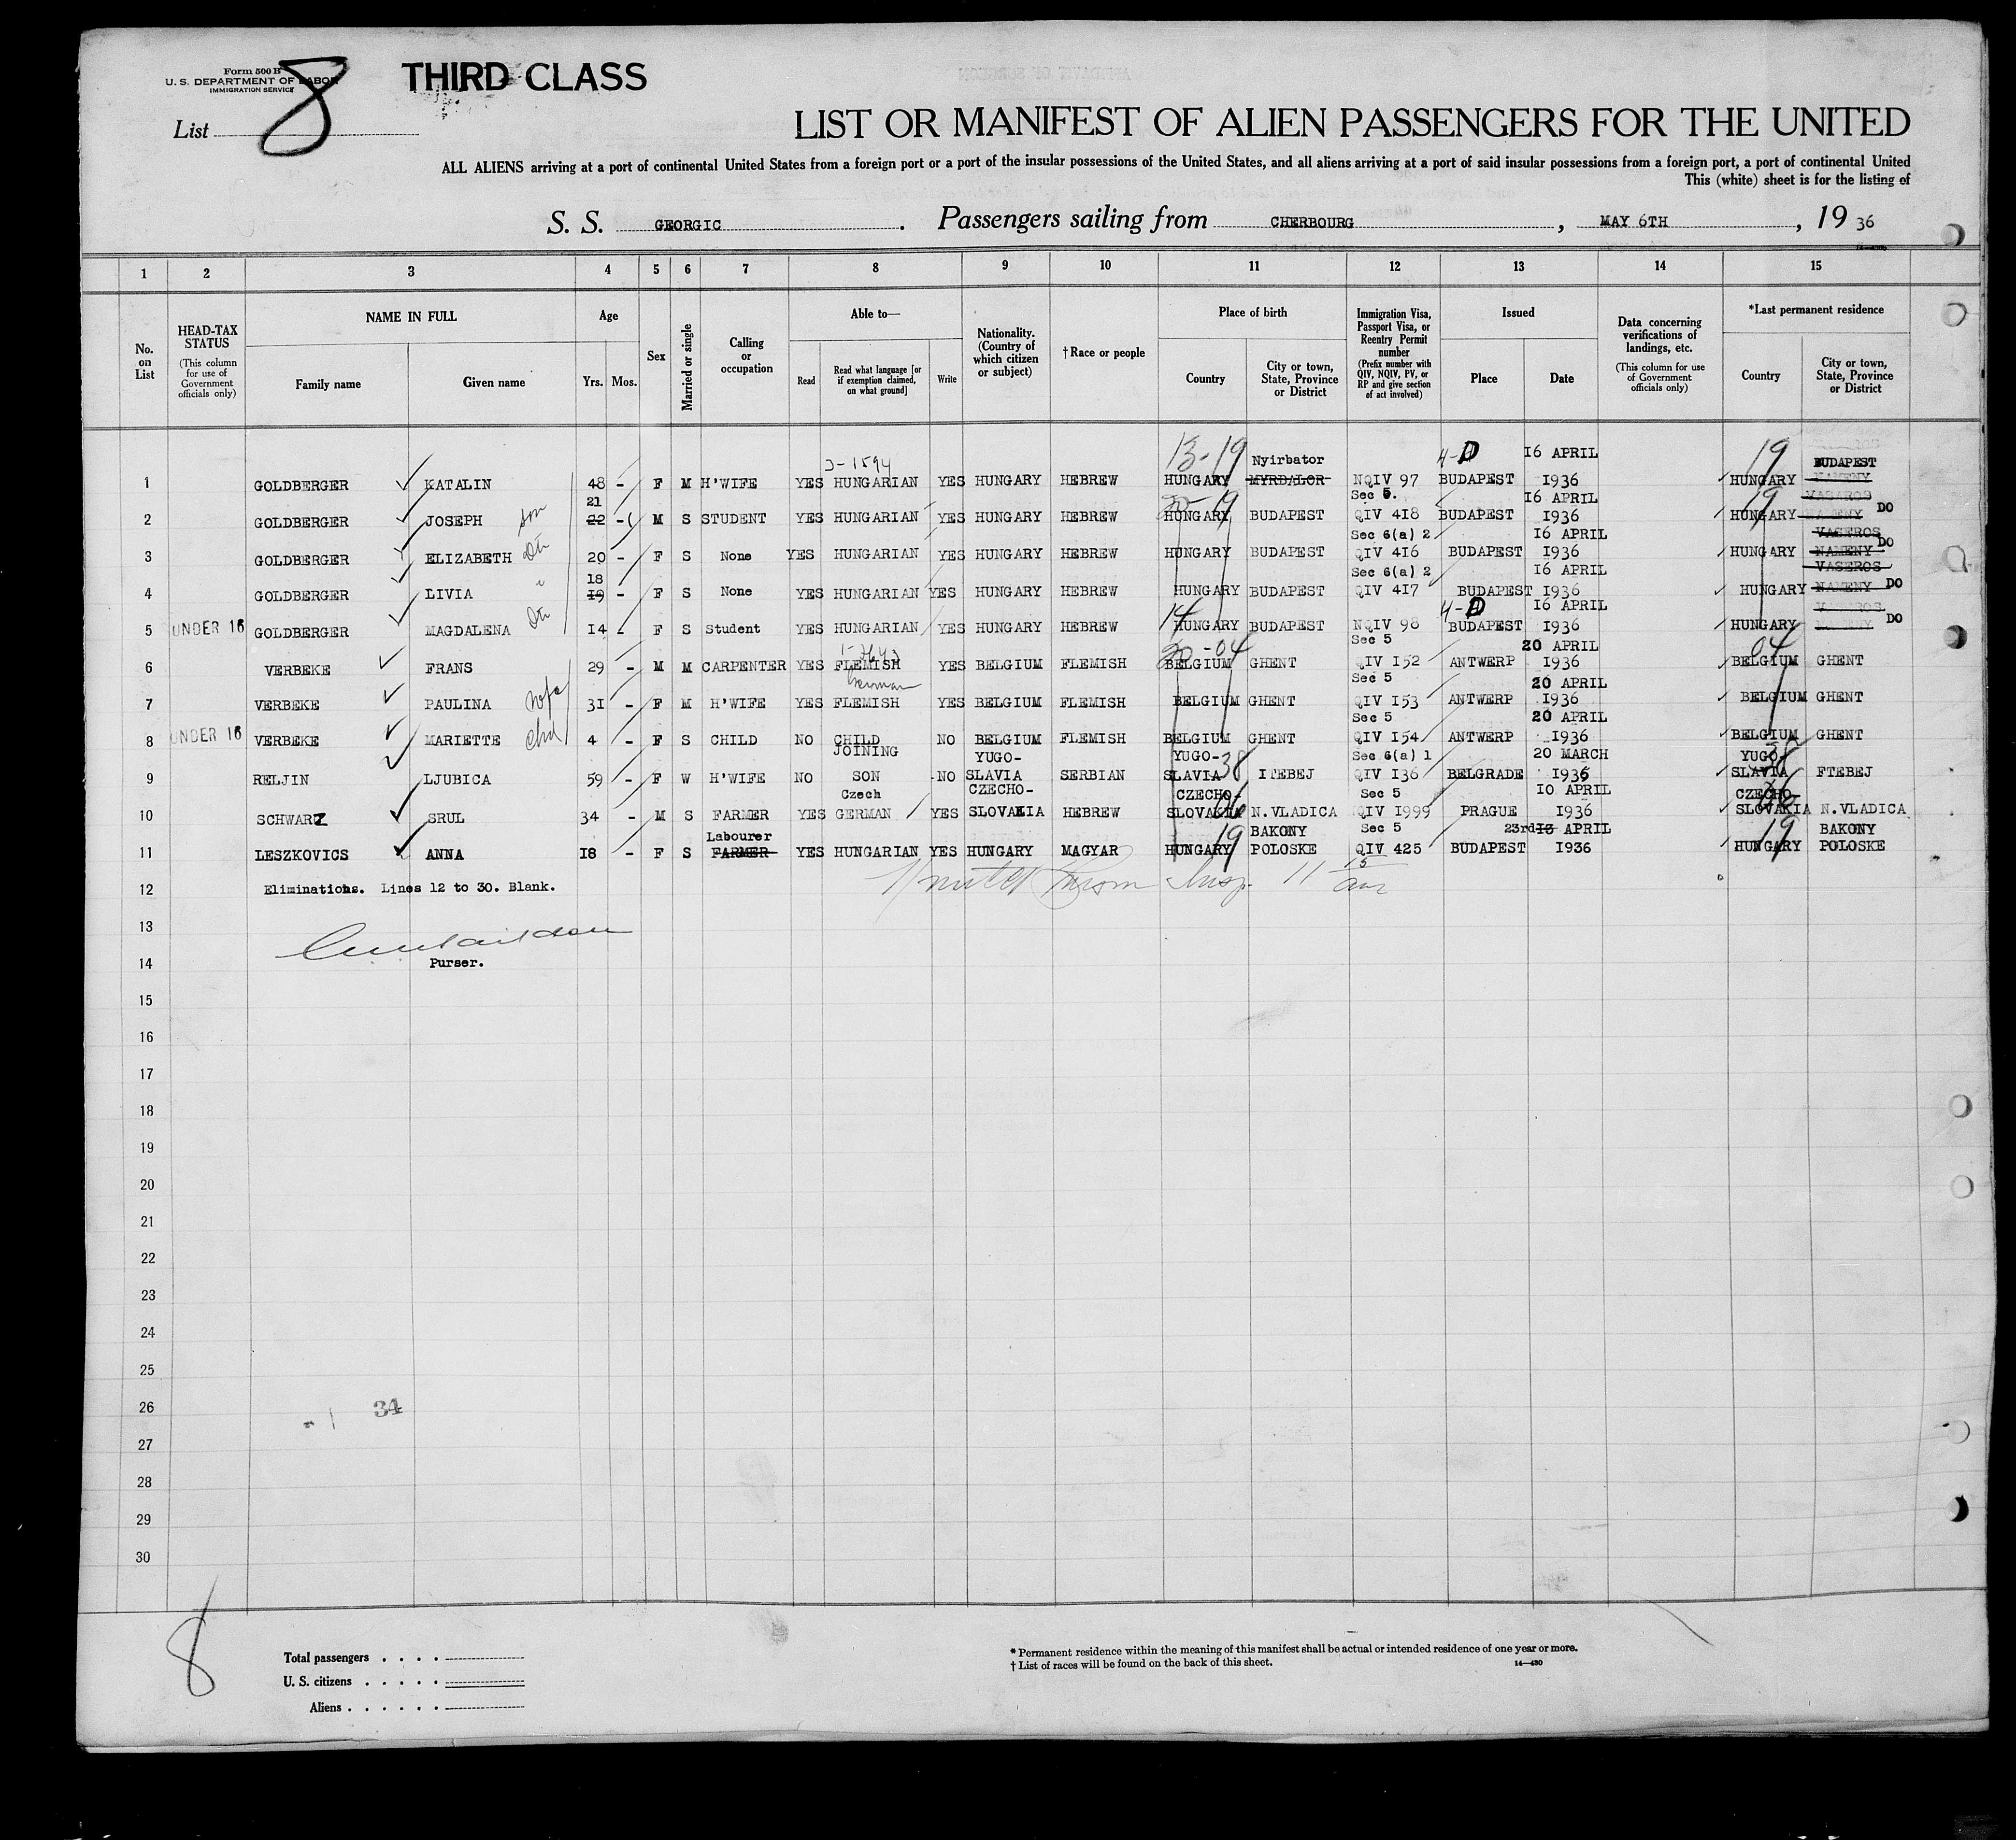 Form 500 B
U. S. DEPARTMENT OF LABOR
IMMIGRATION SERVICE
THIRD CLASS
List 8
LIST OR MANIFEST OF ALIEN PASSENGERS FOR THE UNITED
ALL ALIENS arriving at a port of continental United States from a foreign port or a port of the insular possessions of the United States, and all aliens arriving at a port of said insular possessions from a foreign port, a port of continental United
This (white) sheet is for the listing of
S. S. GEORGIC . Passengers sailing from CHERBOURG , MAY 6TH , 19 36
1 2 3 4 5 6 7 8 9 10 11 12 13 14 15
No. on List
HEAD-TAX STATUS (This column for use of Government officials only)
NAME IN FULL
Family name Given name
Age
Yrs. Mos.
Sex
Married or single
Calling or occupation
Able to—
Read
Read what language [or if exemption claimed, on what ground]
Write
Nationality. (Country of which citizen or subject)
† Race or people
Place of birth
Country
City or town, State, Province or District
Immigration Visa, Passport Visa, or Reentry Permit number (Prefix number with QIV, NQIV, PV, or RP and give section of act involved)
Issued
Place Date
Data concerning verifications of landings, etc. (This column for use of Government officials only)
*Last permanent residence
Country
City or town, State, Province or District
13-19 Nyirbator 4-D 16 APRIL 19 BUDAPEST
1 GOLDBERGER KATALIN 48 - F M H'WIFE YES HUNGARIAN YES HUNGARY HEBREW HUNGARY MYRDALOR NQIV 97 BUDAPEST 1936 HUNGARY NAMENY
21 Sec 5. 16 APRIL 19 VASAROS
2 GOLDBERGER JOSEPH son 22 - M S STUDENT YES HUNGARIAN YES HUNGARY HEBREW HUNGARY BUDAPEST QIV 418 BUDAPEST 1936 HUNGARY NAMENY DO
Sec 6(a) 2 16 APRIL VASEROS
3 GOLDBERGER ELIZABETH 20 - F S None YES HUNGARIAN YES HUNGARY HEBREW HUNGARY BUDAPEST QIV 416 BUDAPEST 1936 HUNGARY NAMENY DO
18 Sec 6(a) 2 16 APRIL VASEROS
4 GOLDBERGER LIVIA 19 - F S None YES HUNGARIAN YES HUNGARY HEBREW HUNGARY BUDAPEST QIV 417 BUDAPEST 1936 HUNGARY NAMENY DO
14 4-D 16 APRIL
5 UNDER 16 GOLDBERGER MAGDALENA 14 - F S Student YES HUNGARIAN YES HUNGARY HEBREW HUNGARY BUDAPEST NQIV 98 BUDAPEST 1936 HUNGARY DO
Sec 5 20 APRIL 04
6 VERBEKE FRANS 29 - M M CARPENTER YES FLEMISH YES BELGIUM FLEMISH BELGIUM GHENT QIV 152 ANTWERP 1936 BELGIUM GHENT
German Sec 5 20 APRIL
7 VERBEKE PAULINA wife 31 - F M H'WIFE YES FLEMISH YES BELGIUM FLEMISH BELGIUM GHENT QIV 153 ANTWERP 1936 BELGIUM GHENT
Sec 5 20 APRIL
8 UNDER 16 VERBEKE MARIETTE chd 4 - F S CHILD NO CHILD NO BELGIUM FLEMISH BELGIUM GHENT QIV 154 ANTWERP 1936 BELGIUM GHENT
JOINING YUGO- YUGO- Sec 6(a) 1 20 MARCH YUGO-
9 RELJIN LJUBICA 59 - F W H'WIFE NO SON NO SLAVIA SERBIAN SLAVIA 38 ITEBEJ QIV 136 BELGRADE 1936 SLAVIA FTEBEJ
Czech CZECHO- CZECHO- Sec 5 10 APRIL CZECHO-
10 SCHWARZ SRUL 34 - M S FARMER YES GERMAN YES SLOVAKIA HEBREW SLOVAKIA N.VLADICA QIV 1999 PRAGUE 1936 SLOVAKIA N.VLADICA
Labourer BAKONY Sec 5 23rd 13 APRIL BAKONY
11 LESZKOVICS ANNA 18 - F S FARMER YES HUNGARIAN YES HUNGARY MAGYAR HUNGARY 19 POLOSKE QIV 425 BUDAPEST 1936 HUNGARY 19 POLOSKE
12 Eliminations. Lines 12 to 30. Blank.
13
14 Purser.
15
16
17
18
19
20
21
22
23
24
25
26 34
27
28
29
30
8
Total passengers . . . .
U. S. citizens . . . . .
Aliens . . . . . .
* Permanent residence within the meaning of this manifest shall be actual or intended residence of one year or more.
† List of races will be found on the back of this sheet.
14—430